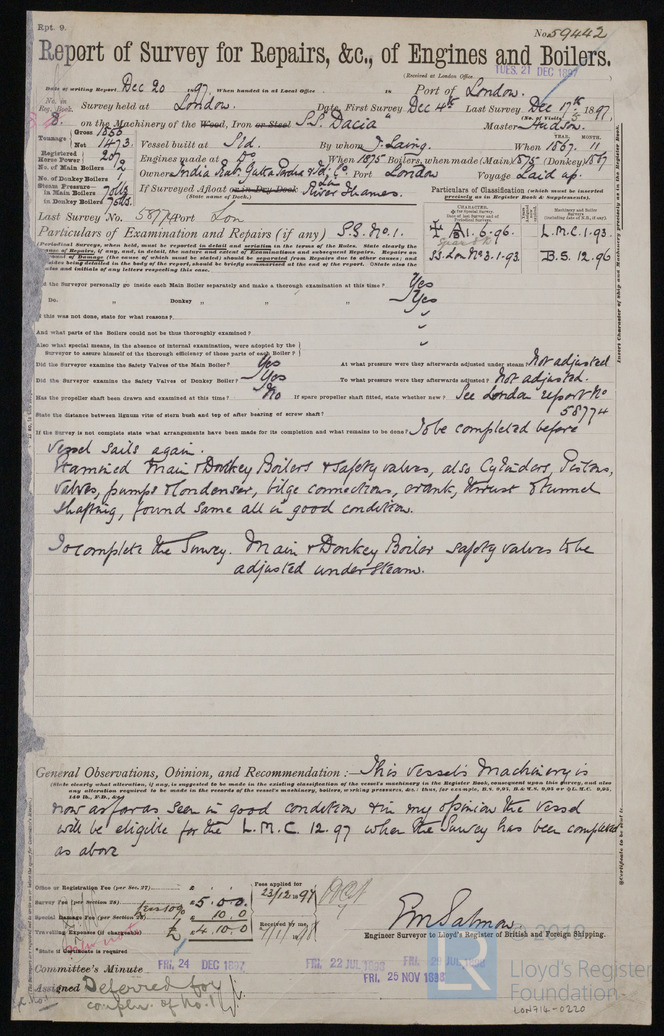 Rpt. 9.
No. 59442
Report of Survey for Repairs, &c., of Engines and Boilers.
(Received at London Office
TUES. 21 DEC 1897
Date of writing Report Dec 20 1897 When handed in at Local Office in Port of London.
No. in Reg. Book. Survey held at London. Date, First Survey Dec 4th Last Survey Dec 17th 1897
(No. of Visits 5
8. on the Machinery of the Wood, Iron or Steel S.S. Dacia Master Hudson.
Tonnage Gross 1856
Net 1473
Vessel built at S'ld. By whom J. Laing. When 1867. 11
YEAR. MONTH.
Registered Horse Power 207
Engines made at Do When 1875 Boilers, when made (Main) 1875 (Donkey) 1867
No. of Main Boilers 2
Owners India Rub. Gutta Percha & Co. Port London Voyage Laid up.
No. of Donkey Boilers 1
Steam Pressure in Main Boilers 70 lbs
in Donkey Boilers 70 lbs.
If Surveyed Afloat or in Dry Dock River Thames.
(State name of Dock.)
Particulars of Classification (which must be inserted precisely as in Register Book & Supplements).
Last Survey No. 58774 Port Lon
Particulars of Examination and Repairs (if any) S.S. No. 1.
A 1. 6. 96.
L.M.C. 1. 93.
S.S. Lon No 3. 1. 93
B.S. 12. 96
Did the Surveyor personally go inside each Main Boiler separately and make a thorough examination at this time? Yes
Do. " Donkey " " " Yes
If this was not done, state for what reasons?
And what parts of the Boilers could not be thus thoroughly examined?
Also what special means, in the absence of internal examination, were adopted by the Surveyor to assure himself of the thorough efficiency of those parts of each Boiler?
Did the Surveyor examine the Safety Valves of the Main Boiler? Yes At what pressure were they afterwards adjusted under steam? Not adjusted
Did the Surveyor examine the Safety Valves of Donkey Boiler? Yes To what pressure were they afterwards adjusted? Not adjusted.
Has the propeller shaft been drawn and examined at this time? No If spare propeller shaft fitted, state whether new? See London report No 58774
State the distance between lignum vitæ of stern bush and top of after bearing of screw shaft?
If the Survey is not complete state what arrangements have been made for its completion and what remains to be done? To be completed before
Vessel sails again.
Examined Main & Donkey Boilers & safety valves, also Cylinders, Pistons,
Valves, pumps & Condenser, bilge connections, crank, thrust & tunnel
shafting, found same all in good condition.
To complete the Survey. Main & Donkey Boiler safety valves to be
adjusted under steam.
General Observations, Opinion, and Recommendation:— This vessel's Machinery is
(State clearly what alteration, if any, is suggested to be made in the existing classification of the vessel's machinery in the Register Book, consequent upon this survey, and also
any alteration required to be made in the records of the vessel's machinery, boilers, working pressures, &c.
now as far as seen in good condition & in my opinion the vessel
will be eligible for the L.M.C. 12.97 when the Survey has been completed
as above
Office or Registration Fee (per Sec. 27) £
Fees applied for 23/12 1897
Survey Fee (per Section 28) £ 5. 0. 0.
Special Damage Fee (per Section 28) 10. 0
Travelling Expenses (if chargeable) £ 4. 10. 0
Received by me,
*State if Certificate is required
E M Salmon
Engineer Surveyor to Lloyd's Register of British and Foreign Shipping.
Committee's Minute FRI, 24 DEC 1897
FRI. 22 JUL 1898
FRI. 25 NOV 1898
Assigned Deferred for
complen. of No. 1
Insert Character of Ship and Machinery precisely as in the Register Book.
© 2019
LR
Lloyd's Register
Foundation
LON914-0220